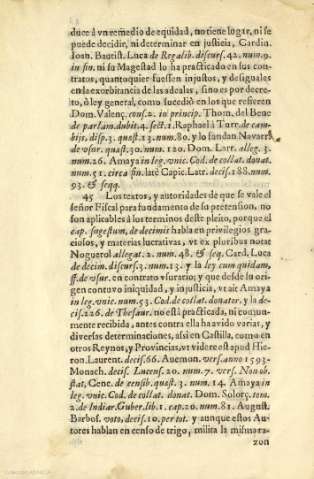 duce à vn remedio de equidad, no tiene lugar, ni se
puede decidir, ni determinar en justicia, Cardin.
Ioan. Baptist. Luca de Regalib. discurs. 42. num. 9.
in fin. ni su Magestad lo ha practicado en sus con-
tratos, quantoquier fuessen injustos, y desiguales
en la exorbitancia de las adealas, sino es por decre-
to, ò ley general, como sucediò en los que refieren
Dom. Valenç. cons. 2. in princip. Thom. del Bene
de parlam. dubit. 4. sect. 1. Raphael à Turr. de cam-
bijs, disp. 3. quæst. 13. num. 80. y lo fundan Navarr.
de vsur. quæst. 30. num. 120. Dom. Larr. alleg. 3.
num. 26. Amaya in leg. vnic. Cod. de collat. donat.
num. 51. circa fin. latè Capic. Latr. decis. 188. num.
93. & seqq.
45 Los textos, y autoridades de que se vale el
señor Fiscal para fundamento de su pretension, no
son aplicables à los terminos deste pleito, porque el
cap. sugestum, de decimis habla en privilegios gra-
ciosos, y materias lucrativas, vt ex pluribus notat
Noguerol allegat. 2. num. 48. & seq. Card. Luca
de decim. discurs. 3. num. 13. y la ley cum quidam,
ff. de vsur. en contrato vsurario; y que desde su ori-
gen contuvo iniquidad, y injusticia, vt ait Amaya
in leg. vnic. num. 53. Cod. de collat. donator. y la de-
cis. 226. de Thesaur. no està practicada, ni comun-
mente recibida, antes contra ella ha avido varias, y
diversas determinaciones, assi en Castilla, como en
otros Reynos, y Provincias, vt videre est apud Hie-
ron. Laurent. decis. 66. Auemon. vers. anno 1593.
Monach. decis. Lucens. 20. num. 7. vers. Non ob-
stat, Cenc. de censib. quæst. 3. num. 14. Amaya in
leg. vnic. Cod. de collat. donat. Dom. Solorç. tom.
2. de Indiar. Guber. lib. 1. cap. 20. num. 81. August.
Barbos. voto, decis. 10. per tot. y aunque estos Au-
tores hablan en censo de trigo, milita la misma ra-
zon